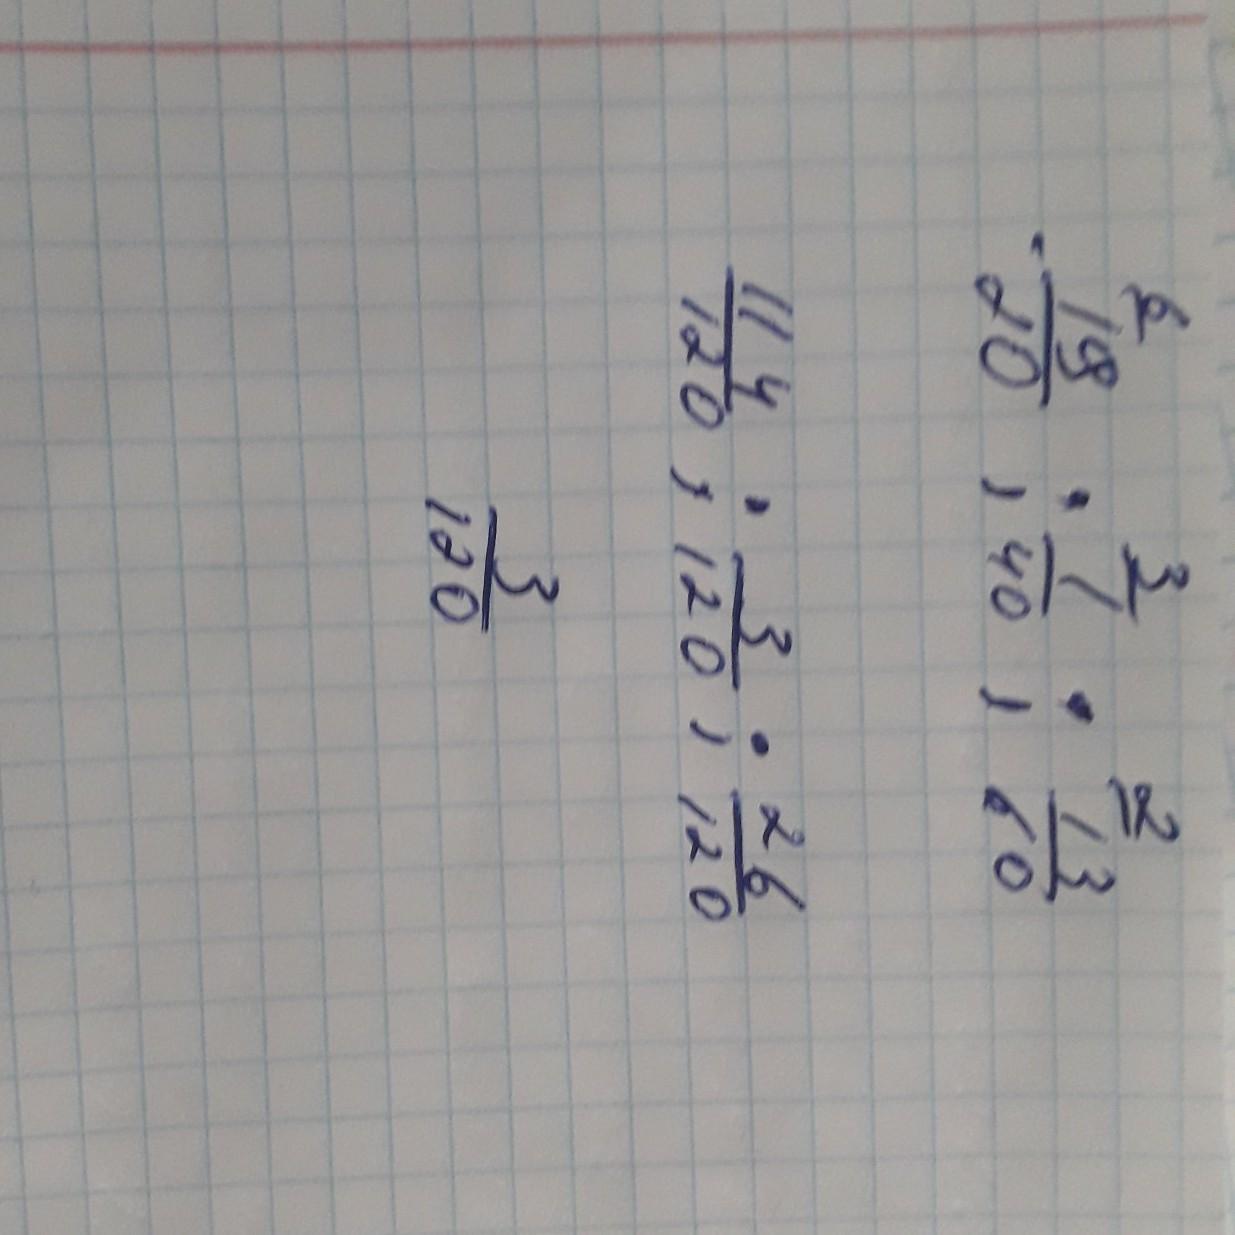 6 3 2
19/20 ; 1/40 ; 13/60
114/120 ; 3/120 ; 26/120
3/120